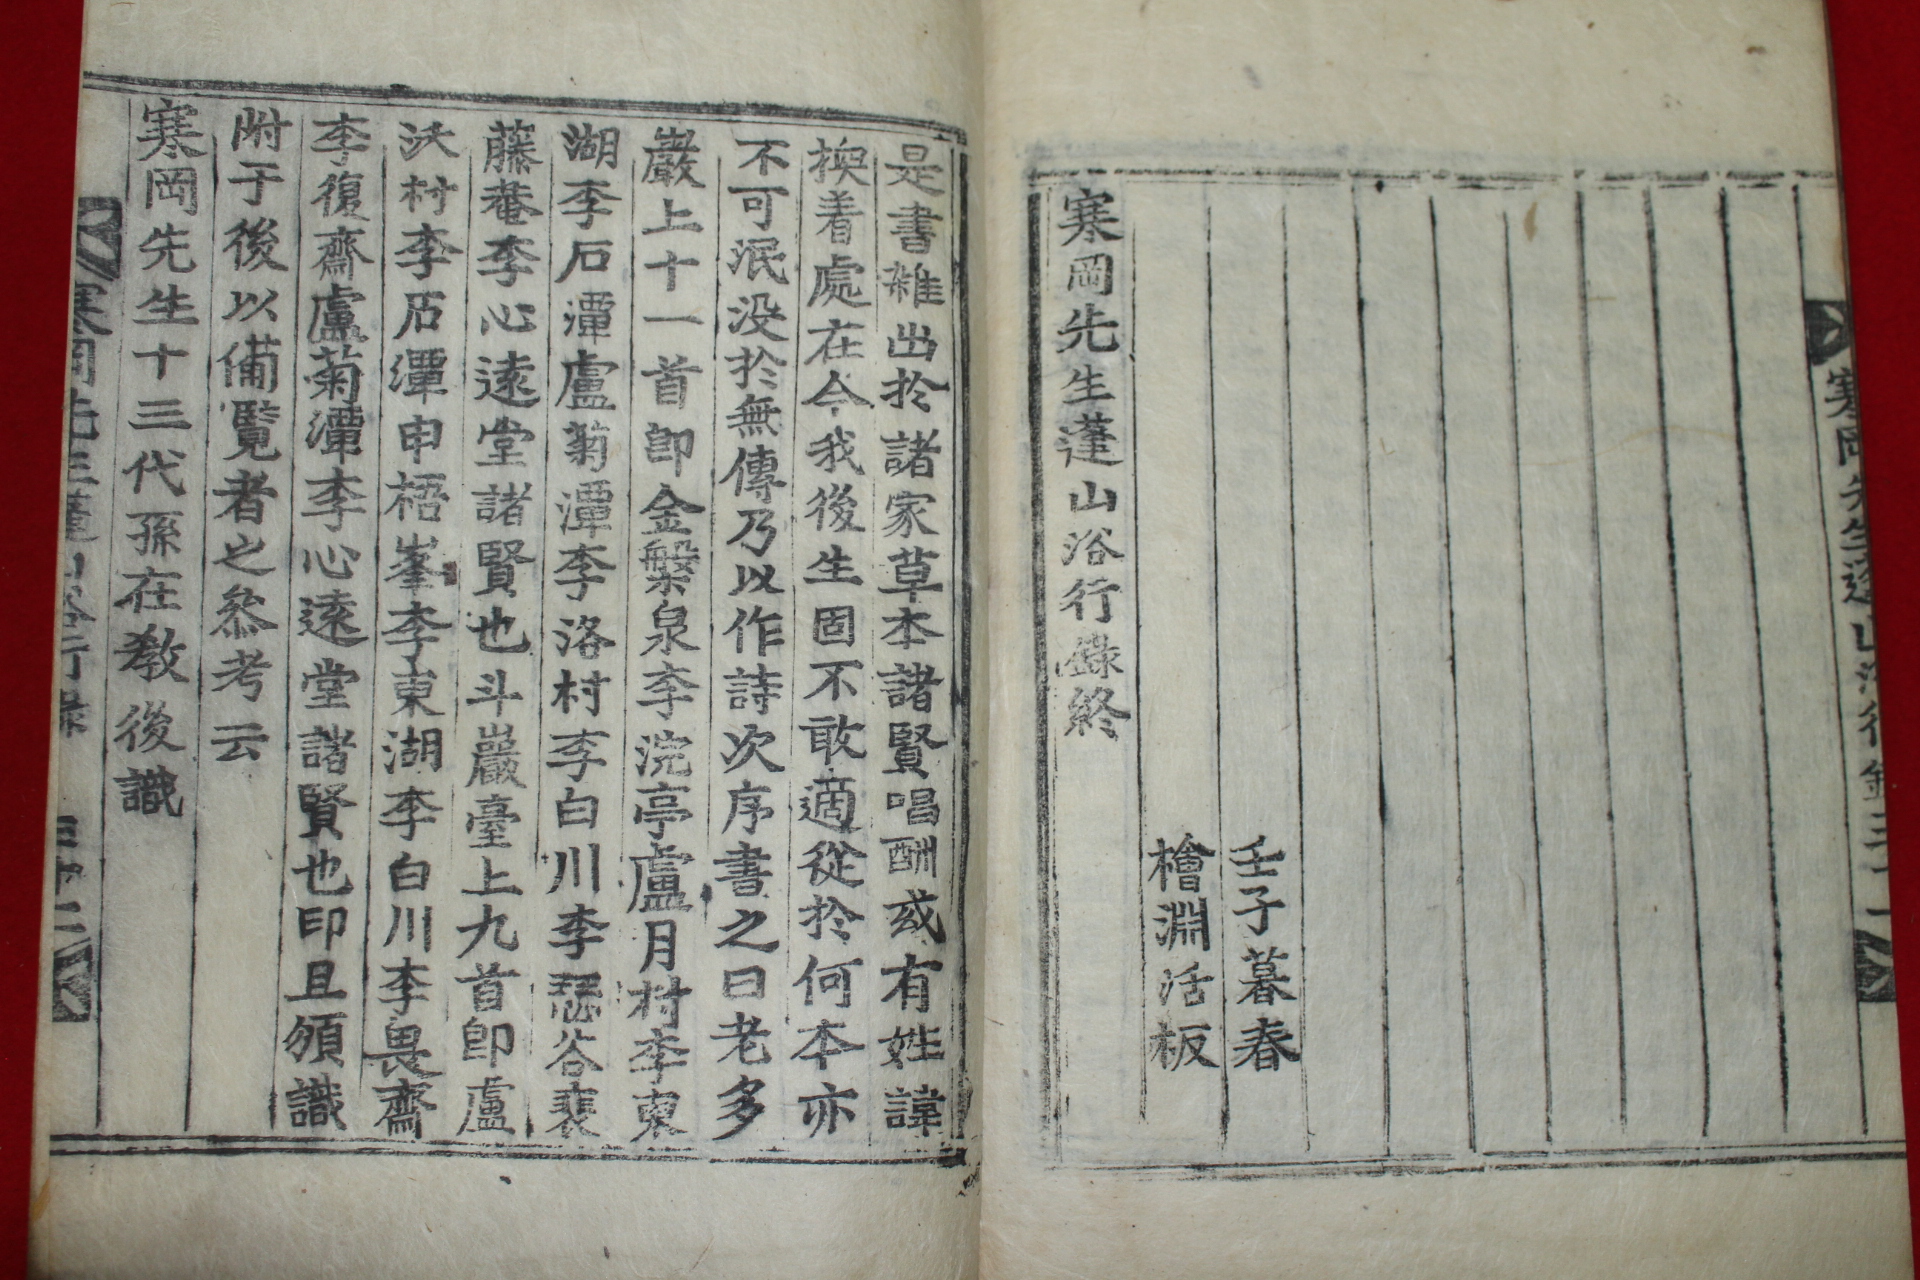 壬子暮春
檜淵活板
寒岡先生蓬山浴行錄終
是書雜出於諸家草本諸賢唱酬或有姓諱
換着處在今我後生固不敢適從於何本亦
不可泯没於無傳乃以作詩次序書之曰老多
巖上十一首卽金槃泉李浣亭盧月村李東
湖李石潭盧菊潭李洛村李白川李琶谷裵
藤菴李心遠堂諸賢也斗巖臺上九首卽盧
沃村李石潭申梧峯李東湖李白川李畏齋
李復齋盧菊潭李心遠堂諸賢也印且頒識
附于後以備覽者之叅考云
寒岡先生十三代孫在敎後識